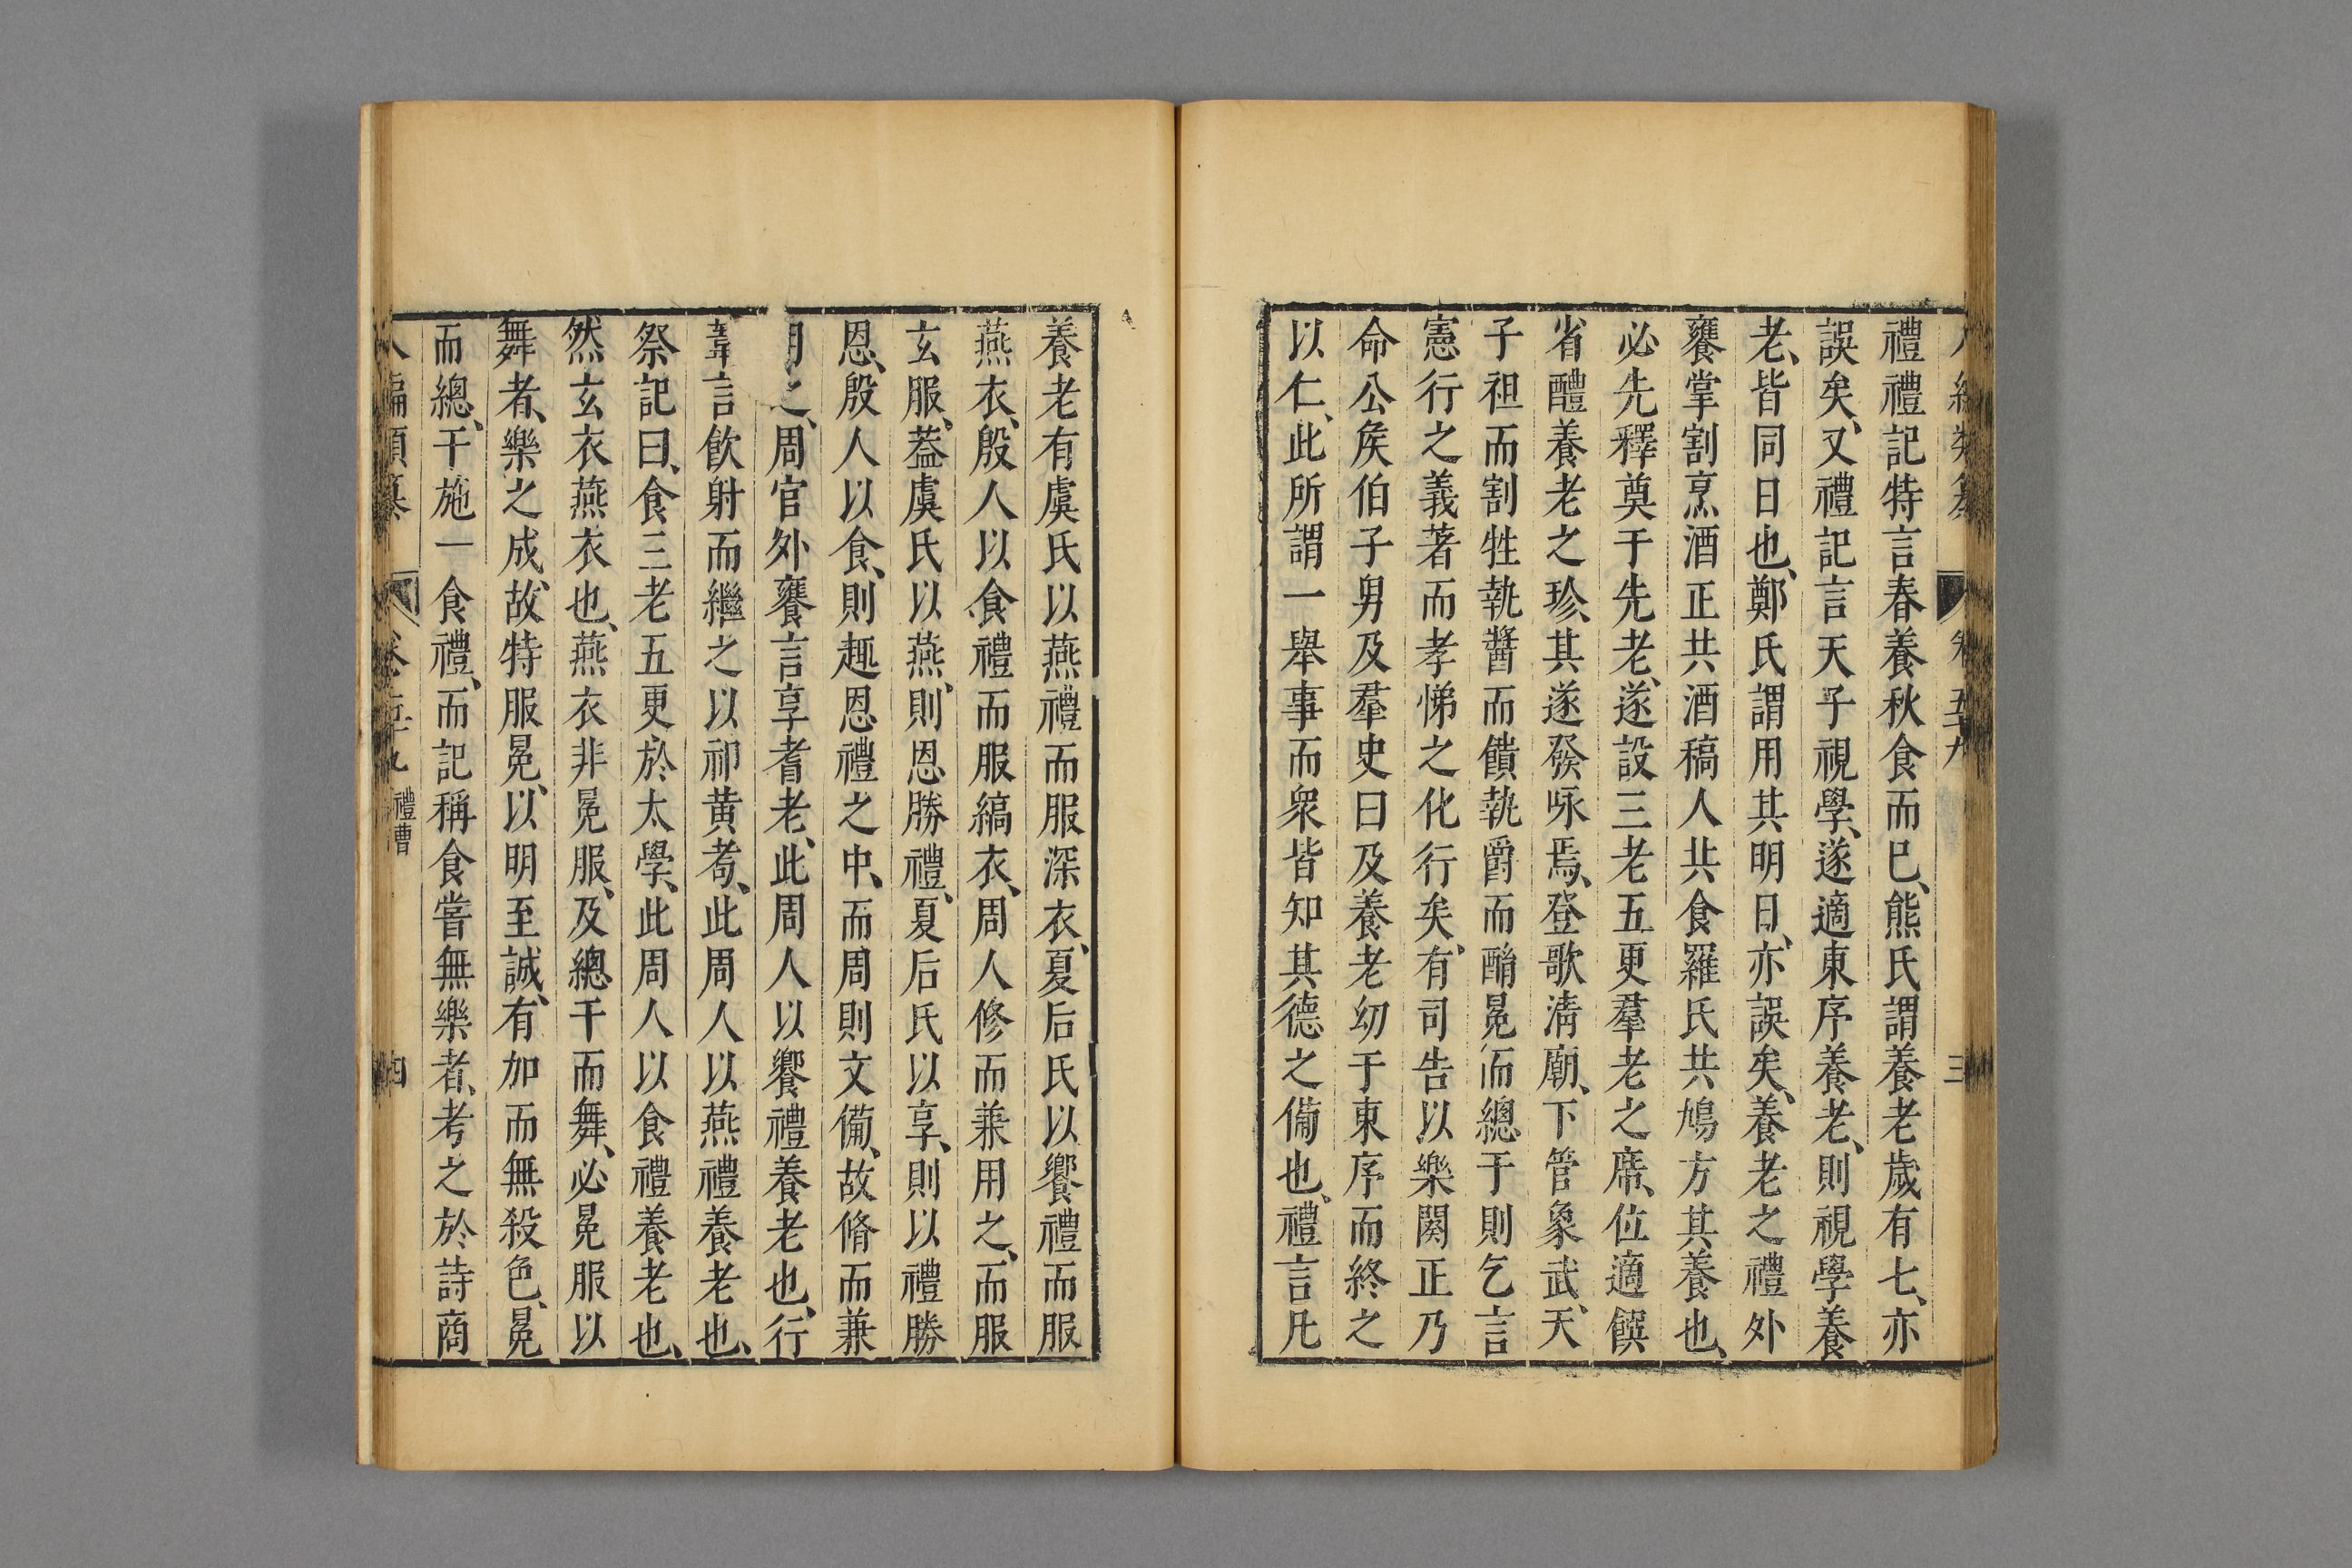 禮禮記特言春養秋食而巳、熊氏謂養老歲有七、亦
誤矣、又禮記言天子視學、遂適東序養老、則視學養
老、皆同日也、鄭氏謂用其明日、亦誤矣、養老之禮外
饔掌割烹酒正共酒稿人共食羅氏共鳩方其養也、
必先釋奠于先老、遂設三老五更羣老之席、位適饌
省醴養老之珍、其遂發咏焉、登歌清廟、下管象武、天
子袒而割牲執醬而饋執爵而酳冕而總干則乞言
憲行之義著而孝悌之化行矣、有司告以樂闋正乃
命公矦伯子男及羣吏曰及養老幼于東序而終之
以仁、此所謂一舉事而衆皆知其德之備也、禮言凡
養老有虞氏以燕禮而服深衣、夏后氏以饗禮而服
燕衣、殷人以食禮而服縞衣、周人修而兼用之、而服
玄服、葢虞氏以燕、則恩勝禮、夏后氏以享、則以禮勝
恩、殷人以食、則趣恩禮之中、而周則文備、故脩而兼
用之、周官外饔言享耆老、此周人以饗禮養老也、行
葦言飲射而繼之以祁黄耉、此周人以燕禮養老也、
祭記曰、食三老五更於太學、此周人以食禮養老也、
然玄衣燕衣也、燕衣非冕服、及總干而舞、必冕服以
舞者、樂之成、故特服冕、以明至誠、有加而無殺色、冕
而總、干施一食禮、而記稱食嘗無樂者、考之於詩商
八編類纂 卷五十九 禮曹 四